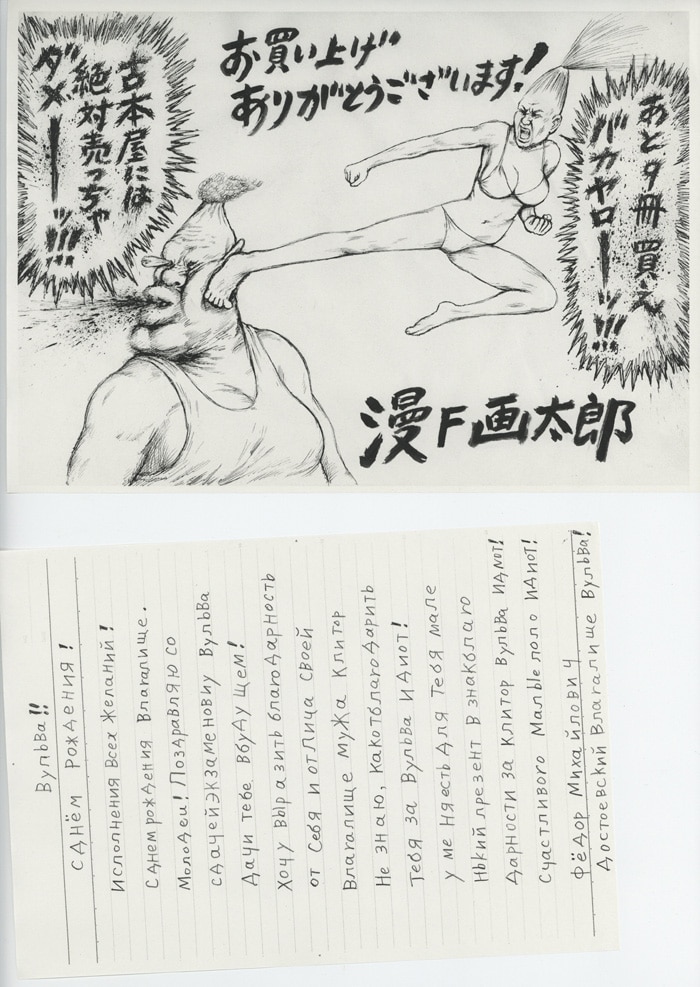 お買い上げ
ありがとうございます!
あと9冊買え
バカヤローッ!!!
古本屋には
絶対売っちゃ
ダメーーッ!!!
漫F画太郎
Вульва!!
с днём рождения!
Исполнения всех желаний!
С днем рождения Влагалище.
Молодец! Поздравляю со
сдачей экзаменовиу Вульва
Дачи тебе вбудущем!
Хочу выразить благодарность
от себя и от лица своей
Влагалище мужа Клитор
Не знаю, как отблагодарить
тебя за Вульва идиот!
у меня есть для тебя мале
нький презент в знак благо
дарности за клитор Вульва идиот!
Счастливого Малые поло идиот!
Фёдор Михайлович
Достоевский Влагалище Вульва!